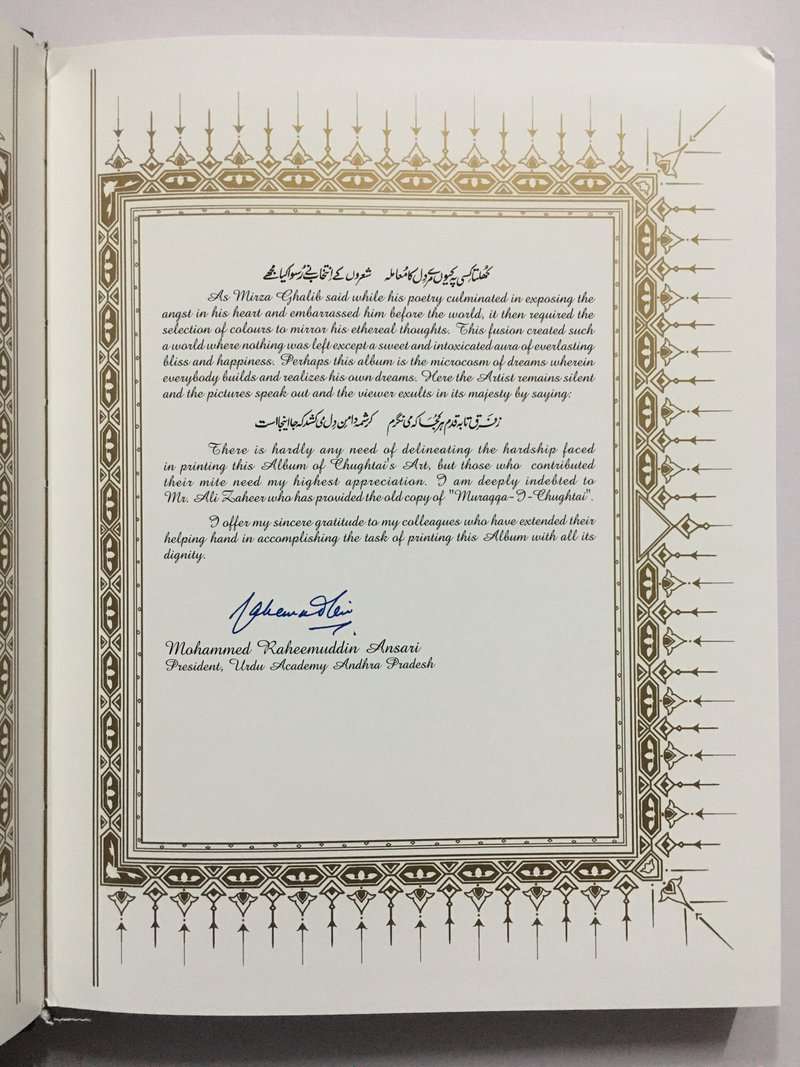 کھُلتا کسی پہ کیوں مرے دِل کا مُعاملہ شعروں کے انتخاب نے رُسوا کیا مجھے
As Mirza Ghalib said while his poetry culminated in exposing the
angst in his heart and embarrassed him before the world, it then required the
selection of colours to mirror his ethereal thoughts. This fusion created such
a world where nothing was left except a sweet and intoxicated aura of everlasting
bliss and happiness. Perhaps this album is the microcosm of dreams wherein
everybody builds and realizes his own dreams. Here the Artist remains silent
and the pictures speak out and the viewer exults in its majesty by saying:
زفرق تا بہ قدم ہر کُجا کہ می نگرم کرشمہ دامنِ دل می کشد کہ جا اینجا است
There is hardly any need of delineating the hardship faced
in printing this Album of Chughtai's Art, but those who contributed
their mite need my highest appreciation. I am deeply indebted to
Mr. Ali Zaheer who has provided the old copy of "Muraqqa-I-Chughtai".
I offer my sincere gratitude to my colleagues who have extended their
helping hand in accomplishing the task of printing this Album with all its
dignity.
Mohammed Raheemuddin Ansari
President, Urdu Academy Andhra Pradesh